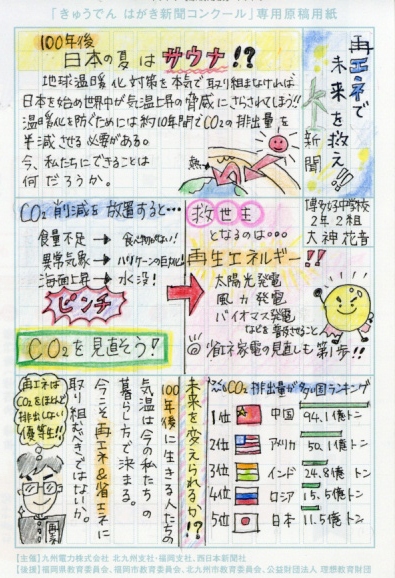 「きゅうでん はがき新聞コンクール」専用原稿用紙
再エネで
未来を救え!!
新聞
博多女子中学校
2年2組
大神花音
100年後
日本の夏はサウナ!?
地球温暖化対策を本気で取り組まなければ
日本を始め世界中が気温上昇の脅威にさらされてしまう!!
温暖化を防ぐためには約10年間でCO2の排出量を
半減させる必要がある。
今、私たちにできることは
何だろうか。
熱
CO2削減を放置すると…
食量不足→食べ物がない!
異常気象→ハリケーンの巨大化
海面上昇→水没!
ピンチ
CO2を見直そう!
救世主
となるのは…
再生エネルギー!!
太陽光発電
風力発電
バイオマス発電
などを普及させること
◎省エネ家電の見直しも第1歩!!
未来を変えられるか!?
100年後に生きる人たちの
気温は今の私たちの
暮らし方で決まる。
今こそ再エネ&省エネに
取り組むべきではないか。
再エネは
CO2をほとんど
排出しない
優等生!!
CO2排出量が多い国ランキング
1位 中国 94.1億トン
2位 アメリカ 50.1億トン
3位 インド 24.8億トン
4位 ロシア 15.5億トン
5位 日本 11.5億トン
【主催】九州電力株式会社 北九州支社・福岡支社、西日本新聞社
【後援】福岡県教育委員会、福岡市教育委員会、北九州市教育委員会、公益財団法人 理想教育財団